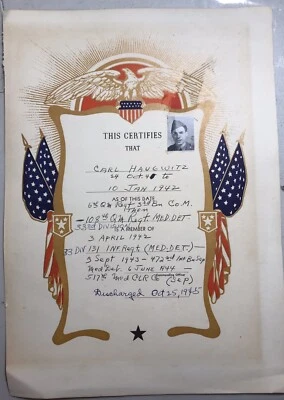 THIS CERTIFIES
THAT
CARL HAUGWITZ
24 Oct 40 to
10 JAN 1942
AS OF THIS DATE
Regt 3rd Bn Co M.
108th QM Regt MED.DET
33rd DIVISION
IS A MEMBER OF
3 APRIL 1942
33 DIV 131 INF Regt (MED-DET)-
3 Sept 1943 - 472nd
6 JUNE 1944 -
517th Med CLR Co (Sep)
Discharged Oct 25, 1945